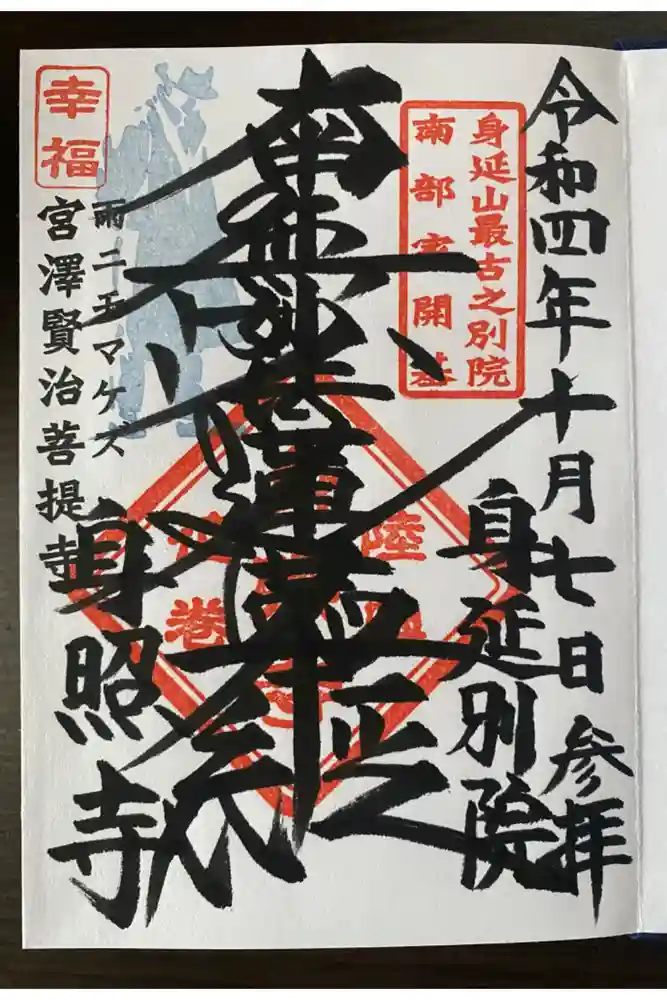 令和四年十月七日 参拝
身延別院
身延山最古之別院
南部家開基
南無妙法蓮華経
幸福
雨ニモマケズ
宮澤賢治菩提寺
身照寺